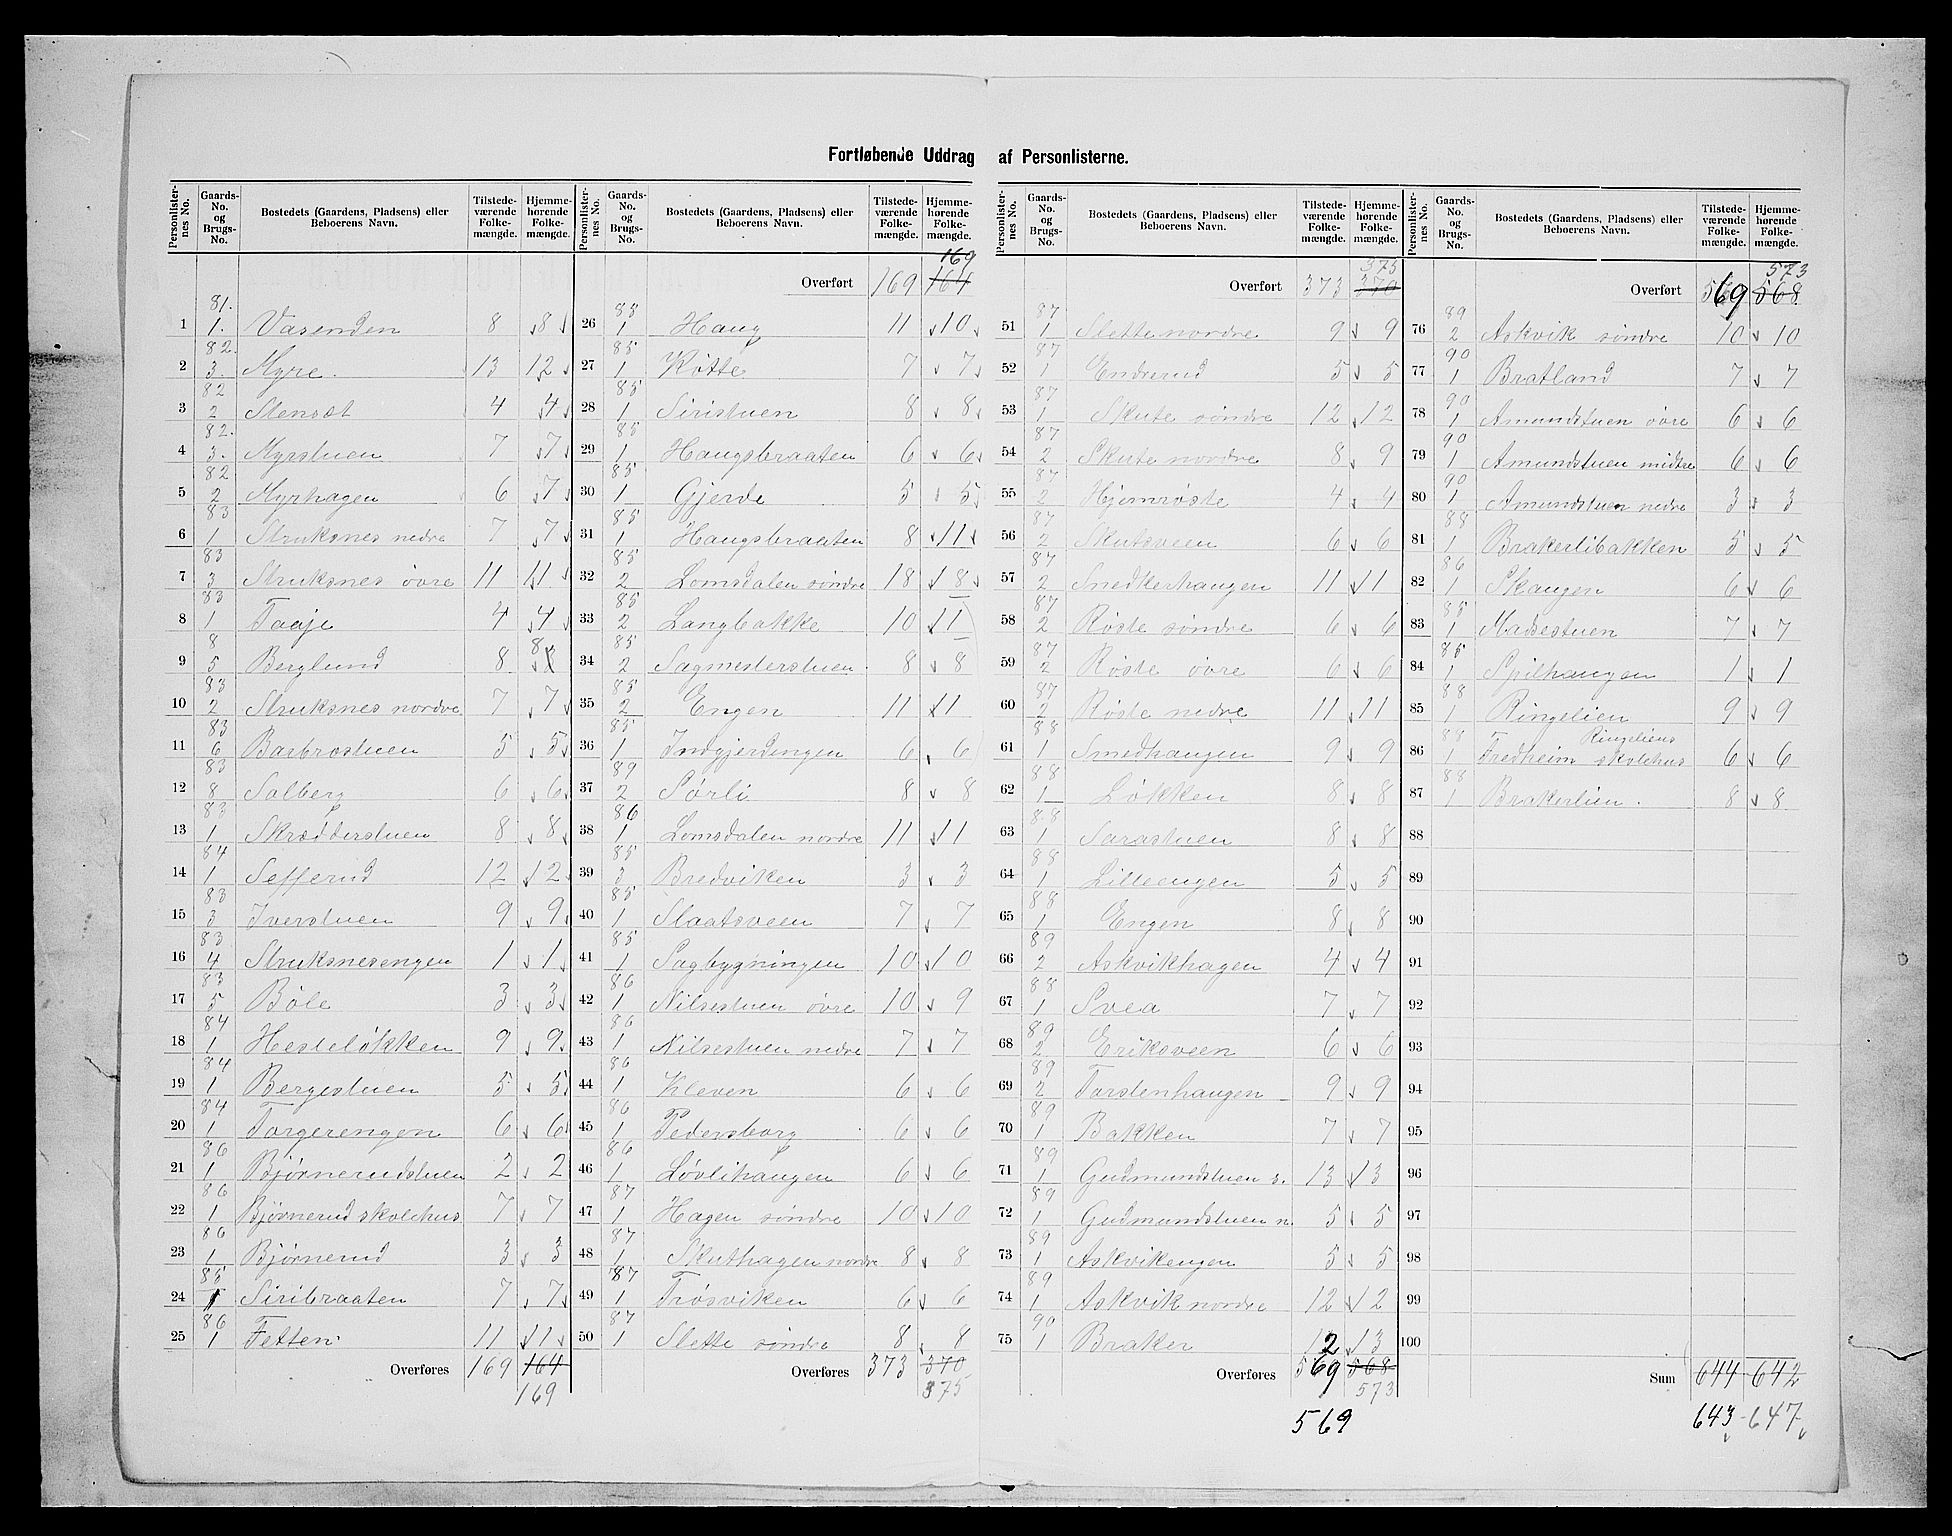 Fortløbende Uddrag af Personlisterne.
Personlister-nes No. | Gaards-No. og Brugs-No. | Bostedets (Gaardens, Pladsens) eller Beboerens Navn. | Tilstede-værende Folke-mængde. | Hjemme-hørende Folke-mængde.
1 81. 1. Vasenden 8 8
2 82. 3. Myre. 13 12
3 82 2 Stensæt 4 4
4 82. 3. Myrstuen 7 7
5 82 2 Myrhagen 6 7
6 83 1 Struksnes nedre 7 7
7 83 3 Struksnes øvre 11 11
8 83 1 Taaje 4 4
9 8 5 Berglund 8 8
10 83 2 Struksnes nordre 7 7
11 83 6 Barbrostuen 5 5
12 83 8 Solberg 6 6
13 83 1 Skrædderstuen 8 8
14 84 1 Sefferud 12 12
15 83 3 Iverstuen 9 9
16 83 4 Struksnesengen 1 1
17 83 5 Bøle 3 3
18 84 1 Hesteløkken 9 9
19 84 1 Bergestuen 5 5
20 84 1 Torgerengen 6 6
21 86 1 Bjørnerudstuen 2 2
22 86 1 Bjørnerud skolehus 7 7
23 86 1 Bjørnerud 3 3
24 85 1 Siribraaten 7 7
25 86 1 Fetten 11 11
Overføres 169 164
169
Personlister-nes No. | Gaards-No. og Brugs-No. | Bostedets (Gaardens, Pladsens) eller Beboerens Navn. | Tilstede-værende Folke-mængde. | Hjemme-hørende Folke-mængde.
169
Overført 169 164
26 88 1 Haug 11 10
27 85 1 Køtte 7 7
28 85 1 Siristuen 8 8
29 85 1 Haugsbraaten 6 6
30 85 1 Gjerde 5 5
31 85 1 Haugsbraaten 8 11
32 85 2 Lomsdalen søndre 18 18
33 85 2 Langbakke 10 11
34 85 2 Sagmesterstuen 8 8
35 85 2 Engen 11 11
36 85 1 Indgjerdingen 6 6
37 89 2 Sørli 8 8
38 86 1 Lomsdalen nordre 11 11
39 85 3 Bredviken 3 3
40 85 1 Slaatsveen 7 7
41 85 1 Sagbygningen 10 10
42 86 1 Nilsestuen øvre 10 9
43 86 1 Nilsestuen nedre 7 7
44 86 1 Kleven 6 6
45 86 1 Pedersborg 6 6
46 86 1 Løvlihaugen 6 6
47 87 1 Hagen søndre 10 10
48 87 1 Skuthagen nordre 8 8
49 87 1 Trøsviken 6 6
50 87 1 Slette søndre 8 8
Overføres 373 370
375
Personlister-nes No. | Gaards-No. og Brugs-No. | Bostedets (Gaardens, Pladsens) eller Beboerens Navn. | Tilstede-værende Folke-mængde. | Hjemme-hørende Folke-mængde.
375
Overført 373 370
51 87 1 Slette nordre 9 9
52 87 1 Endrerud 5 5
53 87 1 Skute søndre 12 12
54 87 2 Skute nordre 8 9
55 87 2 Hjemrøste 4 4
56 87 2 Skutsveen 6 6
57 87 2 Snedkerhaugen 11 11
58 87 2 Røste søndre 6 6
59 87 2 Røste øvre 6 6
60 87 2 Røste nedre 11 11
61 88 1 Smedhaugen 9 9
62 88 1 Løkken 8 8
63 88 1 Sarastuen 8 8
64 88 1 Lilleengen 5 5
65 88 1 Engen 8 8
66 89 2 Askvikhagen 4 4
67 88 1 Svea 7 7
68 89 2 Eriksveen 6 6
69 89 2 Torstenhaugen 9 9
70 89 1 Bakken 7 7
71 89 1 Gudmundstuen s. 13 13
72 89 1 Gudmundstuen n. 5 5
73 89 1 Askvikengen 5 5
74 89 1 Askvik nordre 12 12
75 90 1 Braker 12 13
Overføres 569 568
573
569
Personlister-nes No. | Gaards-No. og Brugs-No. | Bostedets (Gaardens, Pladsens) eller Beboerens Navn. | Tilstede-værende Folke-mængde. | Hjemme-hørende Folke-mængde.
573
Overført 569 568
76 89 2 Askvik søndre 10 10
77 90 1 Bratland 7 7
78 90 1 Amundstuen øvre 6 6
79 90 1 Amundstuen midtre 6 6
80 90 1 Amundstuen nedre 3 3
81 88 1 Brakerlibakken 5 5
82 86 1 Skaugen 6 6
83 85 1 Madsestuen 7 7
84 85 1 Spilhaugen 1 1
85 88 1 Ringelien 9 9
86 88 1 Fredheim Ringeliens skolehus 6 6
87 88 1 Brakerlien. 8 8
88
89
90
91
92
93
94
95
96
97
98
99
100
Sum 644 642
643 647